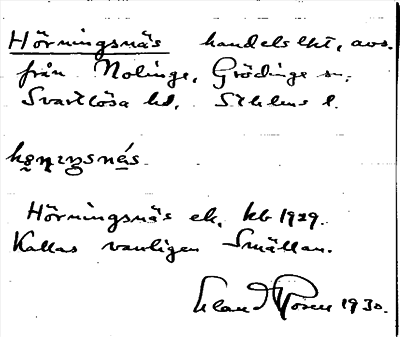 Hörningsnäs handelslht, avs.
från Nolinge, Grödinge sn,
Svartlösa hd, Sthlms l.
Hörningsnäs ek. kb 1929.
Kallas vanligen Smällan.
Rosen 1930.